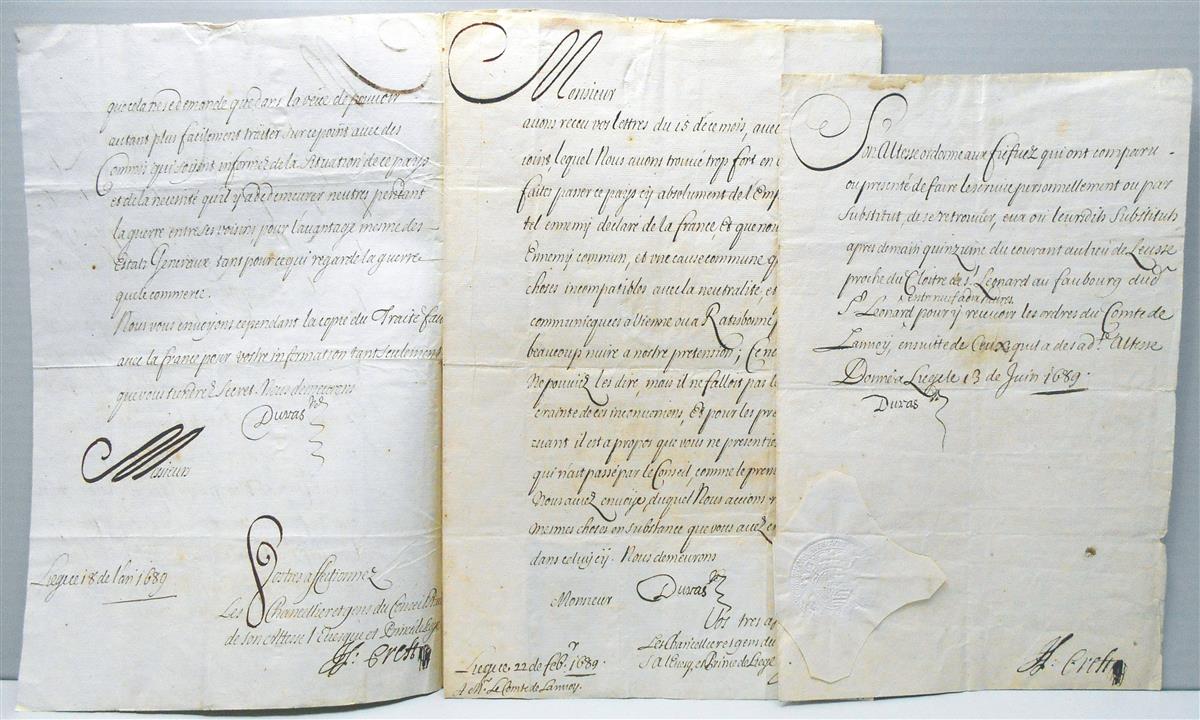 que cela ne se demande que dans la veüe de pouvoir
autant plus facilement traiter sur ce point avec des
Commis qui soient informez de la situation de ce pays
et de la necessité qu'il y a de demeurer neutres pendant
la guerre entre ses voisins pour l'avantage mesme des
Estats Generaux tant pour ce qui regarde la guerre
que le commerce.
Nous vous envoyons cependant la copie du Traité fait
avec la france pour vostre information tant seulement
que vous tiendrez secret. Nous demeurons
Duras
Messieurs
Vostres affectionnez
Liege 18 de Jan 1689
Les Chancellier et gens du Conseil
de son Altesse l'Evesque et Prince de Liege
Monsieur
avons receu vos lettres du 15 de ce mois, avec
joint, lequel Nous avons trouvé trop fort en
faites passer ce pays cy absolument de l'Emp
tel ennemy declaré de la france, Et que nou
Ennemy commun, et une cause commune q
choses incompatibles avec la neutralité, et
communicquées a Vienne ou a Ratisbonne
beaucoup nuire a nostre pretension; Ce n
Ne pouviez les dire, mais il ne falloit pas l
crainte de ces inconveniens, Et pour les pre
il est a propos que vous ne presentie
qui n'ait passé par le Conseil, comme le prem
Nous aviez envoyé, duquel Nous avions
mesmes choses en substance que vous avez
dans celuy cy. Nous demeurons
Duras
Monsieur
Vos tres a
Les Chancellier et gens du
S A l'Evesq. et Prince de Liege
Liege 22 de feb. 1689
A Mr. Le Comte de Lannoy.
Son Altesse ordonne aux fiefvez qui ont comparu
ou presenté de faire le service personnellement ou par
Substitut, de se retrouver, eux ou leursdits Substituts
apres demain quinzieme du courant au lieu de
proche du Cloitre de St. Leonard au faubourg dud.
entre neuf a dix heures
St. Leonard pour y recevoir les ordres du Comte de
Lannoy, ensuitte de Ceux qu'il a de sad.te Altesse
Donné a Liege le 13 de Juin 1689.
Duras